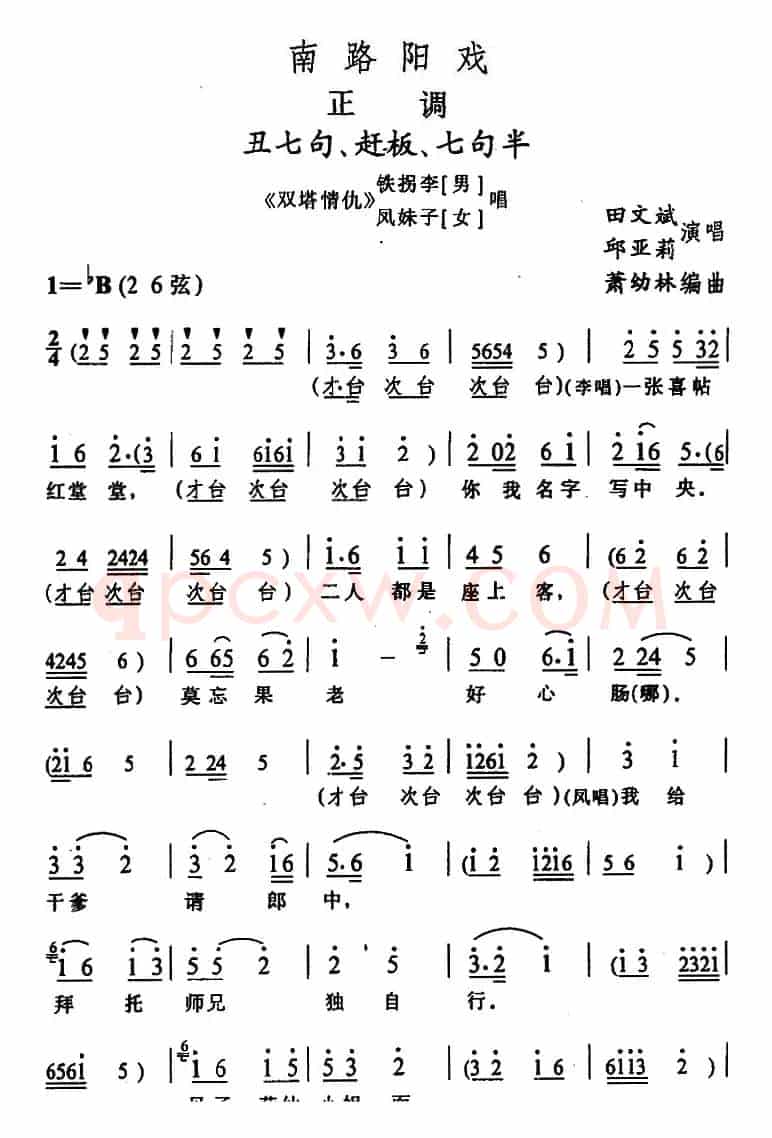 南路阳戏
正调
丑七句、赶板、七句半
《双塔情仇》铁拐李[男]凤妹子[女]唱
田文斌
邱亚莉演唱
萧幼林编曲
1=♭B(2 6弦)
2/4 (2 5 2 5 | 2 5 2 5 | 3·6 3 6 | 5654 5) | 2 5 5 32 |
(才台 次台 次台 台)(李唱)一张喜帖
1 6 2·(3 | 61 6161 | 31 2) | 2 02 6 1 | 2 16 5·(6 |
红堂堂,(才台 次台 次台 台)你我名字 写中央.
2 4 2424 | 564 5) | 1·6 1 1 | 4 5 6 | (62 62 |
(才台 次台 次台 台)二人都是 座上客,(才台 次台
4245 6) | 6 65 6 2 | 1 - | 5 0 6·1 | 2 24 5 |
次台 台)莫忘果老 好心肠(哪).
(21 6 5 | 2 24 5 | 2·5 3 2 | 1261 2) | 3 1 |
(才台 次台 次台 台)(凤唱)我给
3 3 2 | 3 2 16 | 5·6 1 | (1 2 1216 | 5 6 1) |
干爹请郎中,
1 6 1 3 | 5 5 2 | 2 5 | 3·2 1 | (1 3 2321 |
拜托师兄独自行.
6561 5) | 1 6 1 5 | 5 3 2 | (3 2 1 6 | 6113 2) |